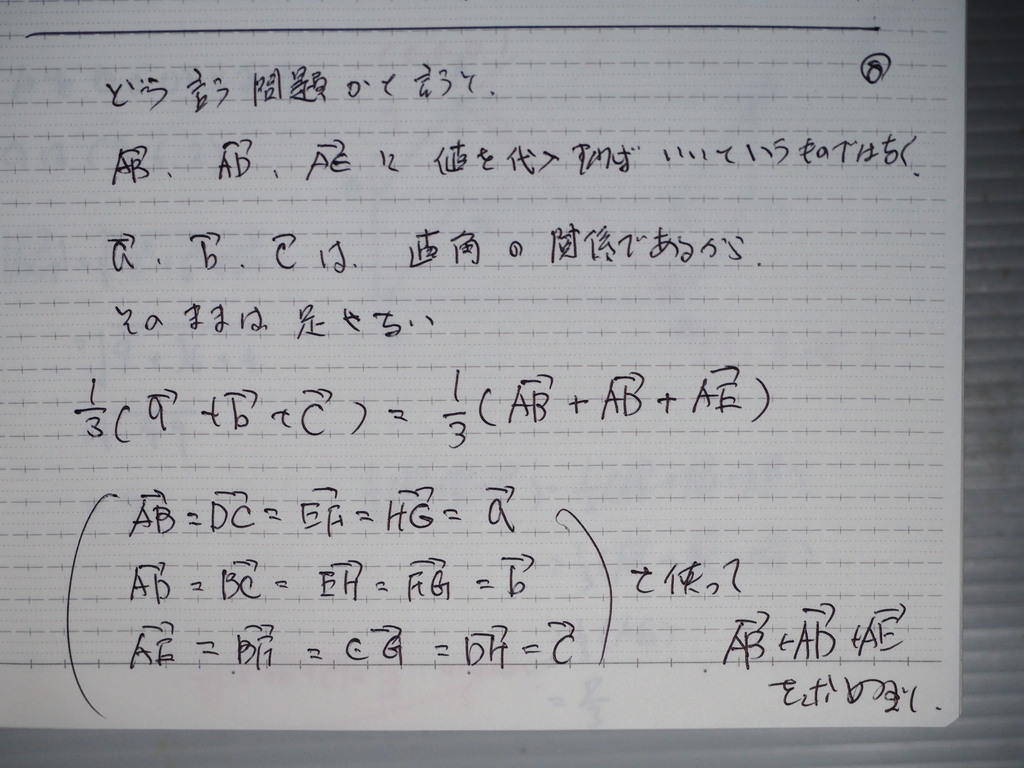 ⑧
どう言う問題かて言うと、
AB、AD、AEに値を代入すればいいというものではなく、
a、b、cは、直角の関係であるから、
そのままは足せない
1/3(a+b+c)=1/3(AB+AD+AE)
AB=DC=EF=HG=a
AD=BC=EH=FG=b
AE=BF=CG=DH=c
を使って
AB+AD+AE